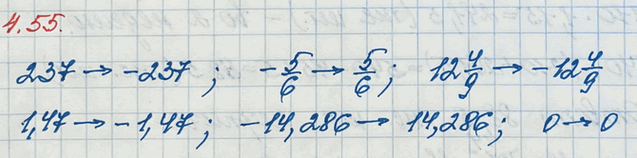 4.55.
237 → -237 ; -5/6 → 5/6 ; 12 4/9 → -12 4/9
1,47 → -1,47 ; -14,286 → 14,286 ; 0 → 0